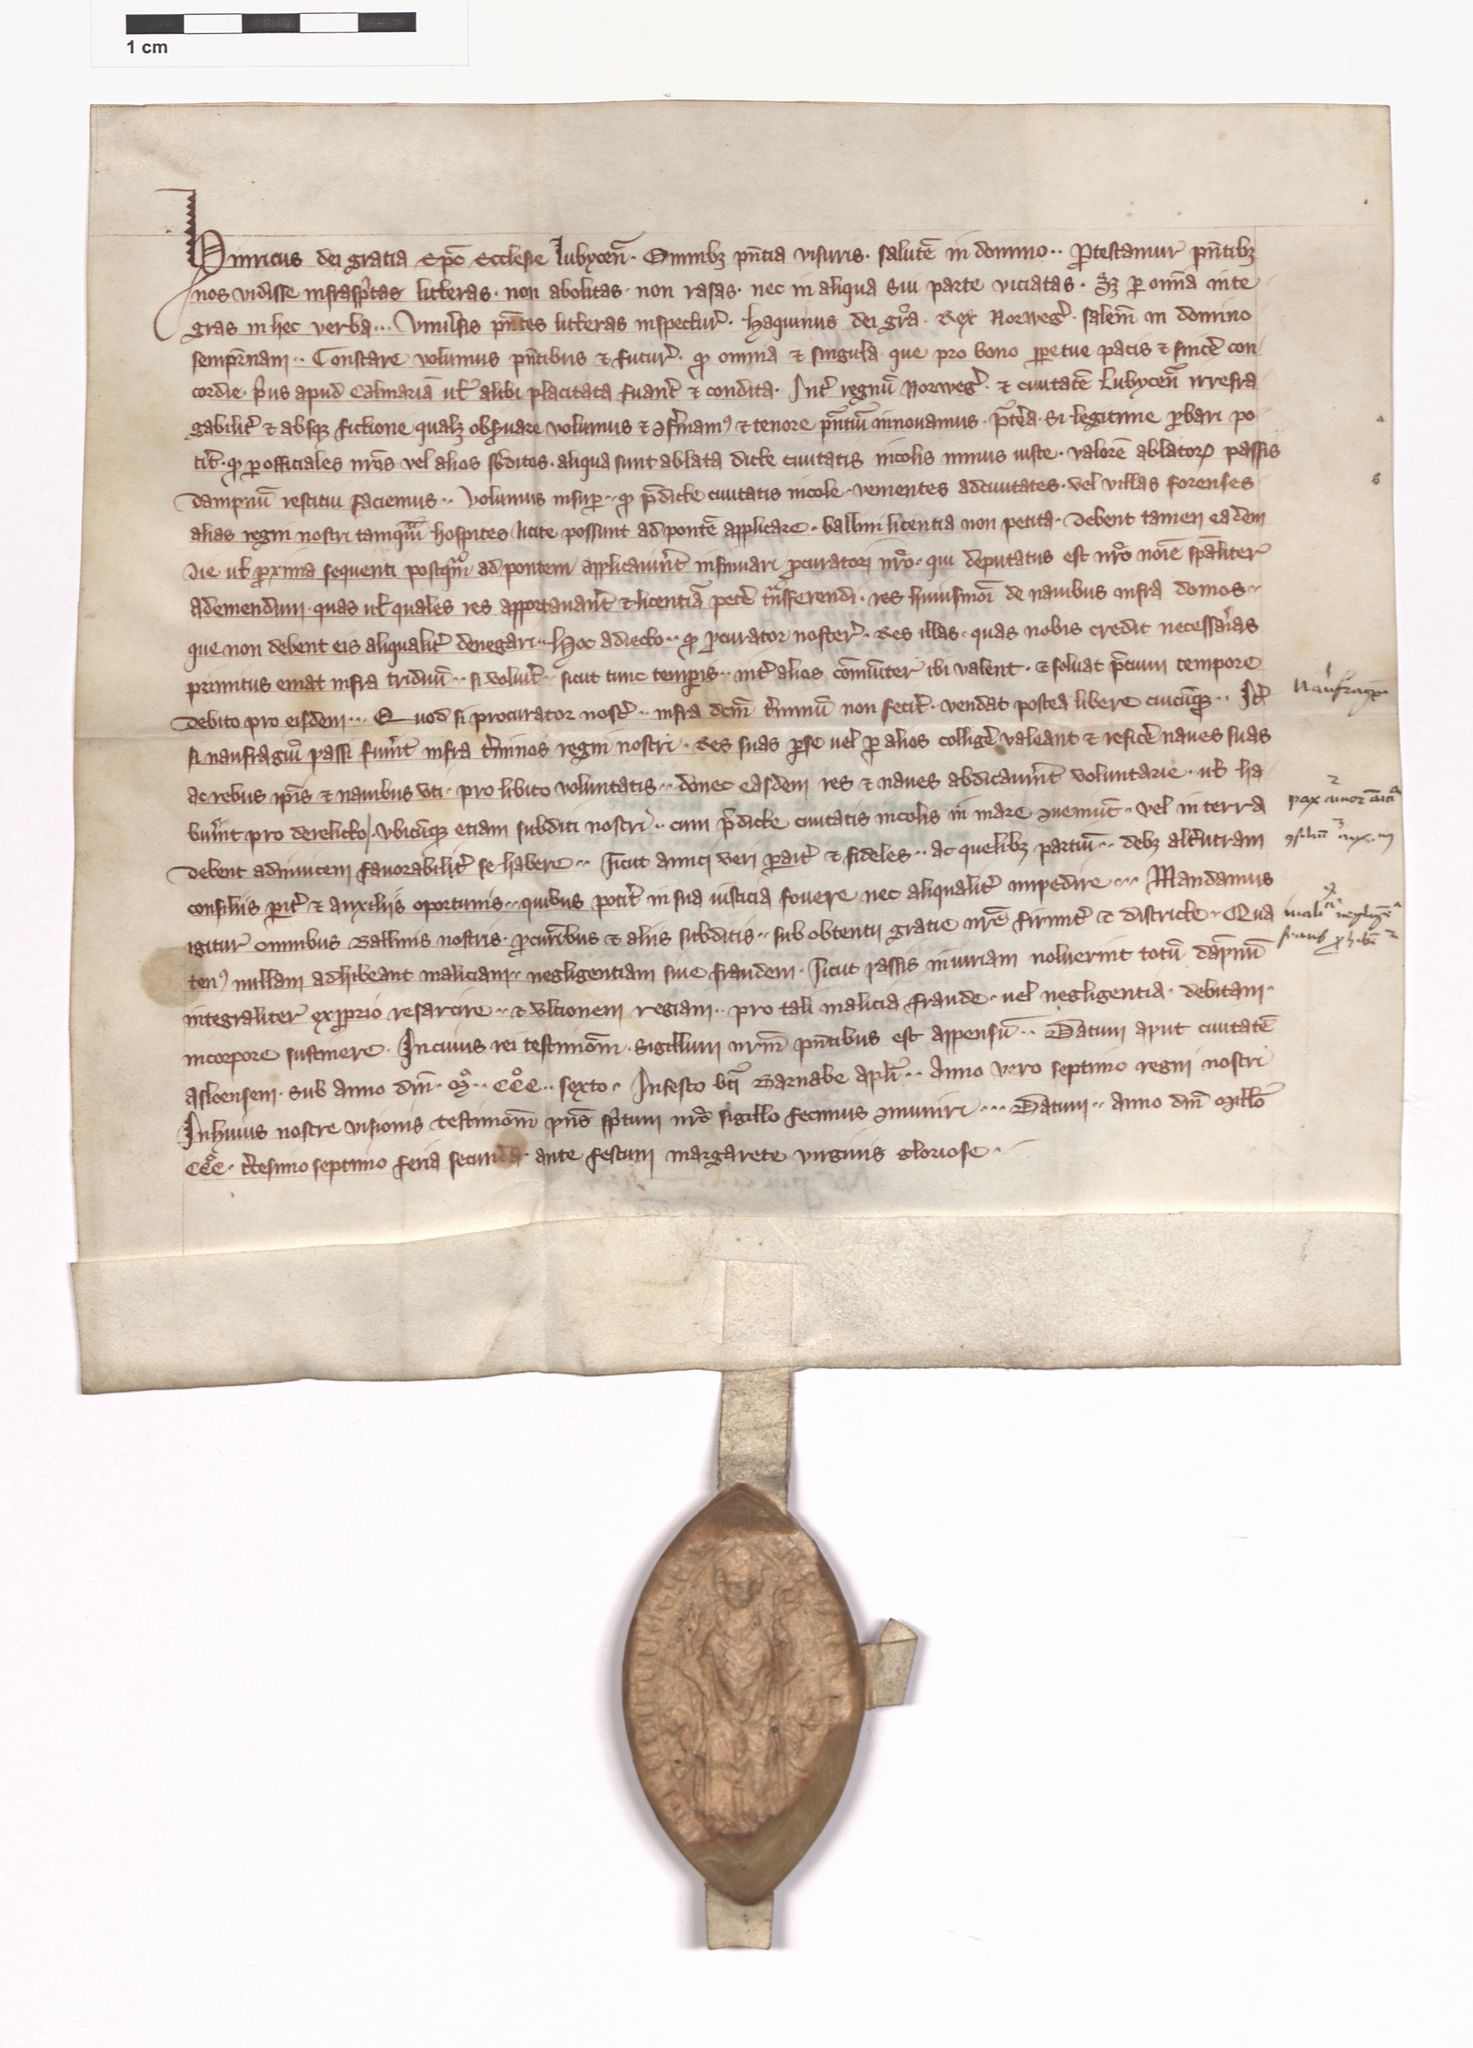 1 cm
Hinricus dei gratia Epc̄ Ecclesie lubycen̄. Omnibȝ pn̄tia visuris. salutē in domino.. Protestamur pn̄tibȝ
nos vidisse infrasp̄tas litteras. non abolitas. non rasas. nec in aliqua sui parte viciatas. Sȝ per om̄ia inte
gras in hec verba... Vniũsis pn̄tes litteras inspectur̾. Haquinus dei gr̄a. Rex Norweg̾. salt̄em in domino
semp̾nam.. Constare volumus pn̄tibus et futur̾. qd̾ omnia et singula que pro bono perpetue pacis et sinc̾e con
cordie. p̾us apud Calmariā ul̾ alibi placitata fuer̾nt et condita. Int̾ regnū Norweg̾. et ciuitatē Lubycen̄ irrefra
gabilit̾ et absqȝ fictione qualȝ obs̾uare volumus et ɔfirmamꝰ et tenore pn̄tiū innouamus. p̾tea. Si legitime probari po
tit̾. qd̾ per officiales nr̄os vel alios sb̾ditos. aliqua sunt ablata dicte ciuitatis incolis minus iuste. valorē ablatorꝝ passis
dampnū restitui faciemus.. Volumus insup̾.. qd̾ p̾dicte ciuitatis incole. venientes ad ciuitates. vel villas forenses
alias regni nostri tamqm̄ hospites licite possunt ad pontē applicare. ballini licentia non petita. Debent tamen eadem
die ul̾ proxima sequenti postqm̄ ad pontem applicauer̾nt insinuari procuratori nr̄o. qui deputatus est nr̄o noīe sp̄aliter
ad emendum. quas ul̾ quales res apportauer̾nt et licentiā pet̾e tn̄sferendi. res huiusmoī de nauibus infra domos..
que non debent eis aliqualit̾ denegari.. Hoc adiecto.. qd̾ procurator noster̾. Res illas. quas nobis credit necessarias
primitus emat infra triduū.. si voluer̾it.. sicut tunc temp̾is.. int̾ alios com̄uniter ibi valent. et soluat p̾cium tempore
debito pro eisdem... Quod si procurator nost̾.. infra dc̄m t̾minū non fecer̾it. vendat postea libere cuicūqȝ.. It̾
si naufragiū passi fuer̾nt infra t̾minos regni nostri. Res suas per se uel per alios collig̾e valeant et refic̾e naues suas
ac rebus ip̄is et nauibus vti. pro libito voluntatis.. donec easdem res et naues abdicauer̾nt voluntarie. ul̾ ha
buer̾nt pro derelicto. Vbicūqȝ etiam subditi nostri.. cum p̾dicte ciuitatis incolis in mare ɔuenīut. vel in terra
debent adinuicem fauorabilit̾ se habere.. sicut amici veri parit̾ et fideles.. ac quelibȝ partiū.. debȝ alt̾utram
consiliis parit̾ et auxiliis oportunis.. quibus potit̾ in sua iusticia fouere nec aliqualit̾ impedire... Mandamus
igitur omnibus Ballinis nostris. procur̾ibus et aliis subditis.. sub obtentu gratie nr̄e firmit̾ et districte. Qua
tenꝰ nullam adhibeant maliciam. negligentiam siue fraudem. sicut passis iniuriam noluerint totū dāpnū
integraliter ex proprio resarcire.. et vltionem regiam.. pro tali malicia fraude. uel negligentia. debitam.
in corpore sustinere. In cuius rei testimōm. sigillum nr̄m pn̄tibus est appensū... Datum aput ciuitatē
asloensem. Sub anno dn̄i. M̊.. CCC̊.. sexto. In festo bt̄i Barnabe apl̾i... Anno vero septimo regni nostri
In huius nostre visionis testimōm pn̄s sp̄tum nr̄o sigillo fecimus ɔmuniri.... Datum.. anno dn̄i Mill̄o
CCC̊. t̾cesimo septimo feria secunda. ante festum margarete virginis gloriose.
Naufragꝫ
pax